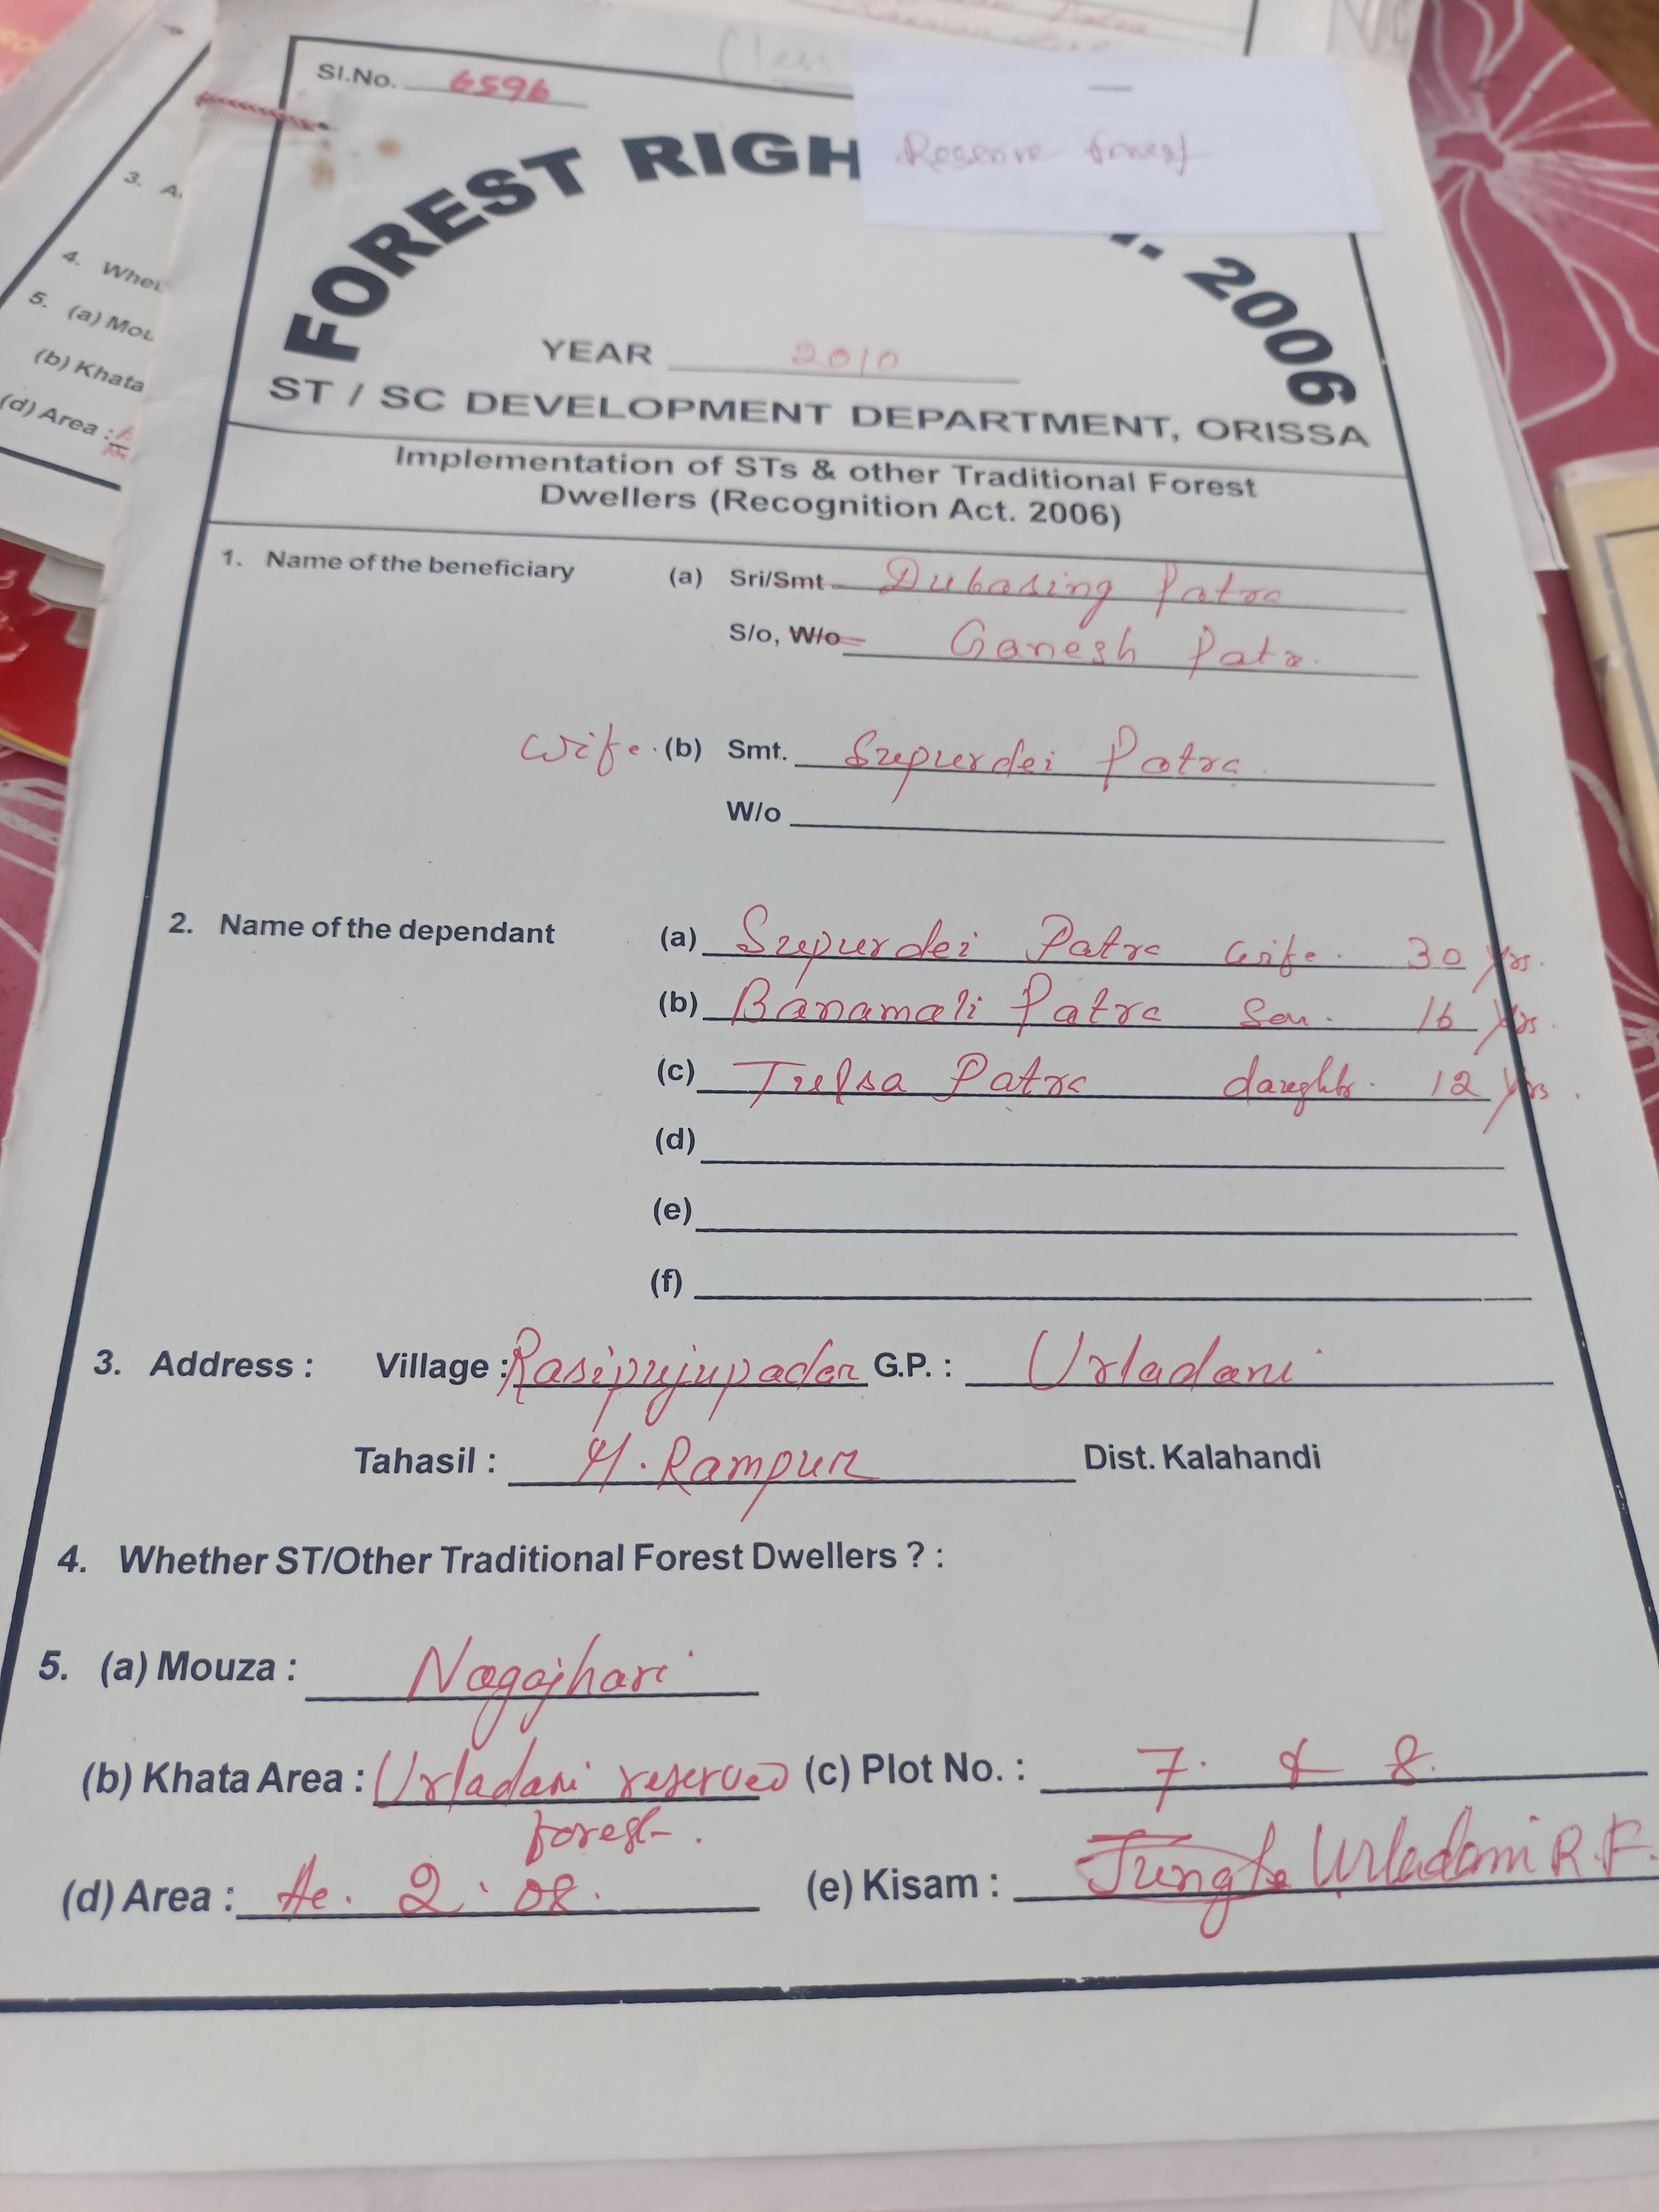 Sl.No. 6596
Reserve forest
FOREST RIGH 2006
YEAR 2010
ST / SC DEVELOPMENT DEPARTMENT, ORISSA
Implementation of STs & other Traditional Forest
Dwellers (Recognition Act. 2006)
1. Name of the beneficiary (a) Sri/Smt Dubasing Patra
S/o, W/o Ganesh Patra.
Wife. (b) Smt. Supurdei Patra.
W/o
2. Name of the dependant (a) Supurdei Patra Wife. 30 yrs.
(b) Banamali Patra Son. 16 yrs.
(c) Tulsa Patra daughter. 12 yrs.
(d)
(e)
(f)
3. Address : Village : Rasipujupadar G.P. : Urladani
Tahasil : M. Rampur Dist. Kalahandi
4. Whether ST/Other Traditional Forest Dwellers ? :
5. (a) Mouza : Nagajhari
(b) Khata Area : Urladani reserved (c) Plot No. : 7. & 8.
forest.
(d) Area : Ac. 2.08. (e) Kisam : Jungle Urladani R.F.
3. A
4. Whet
5. (a) Mou
(b) Khata
(d) Area :